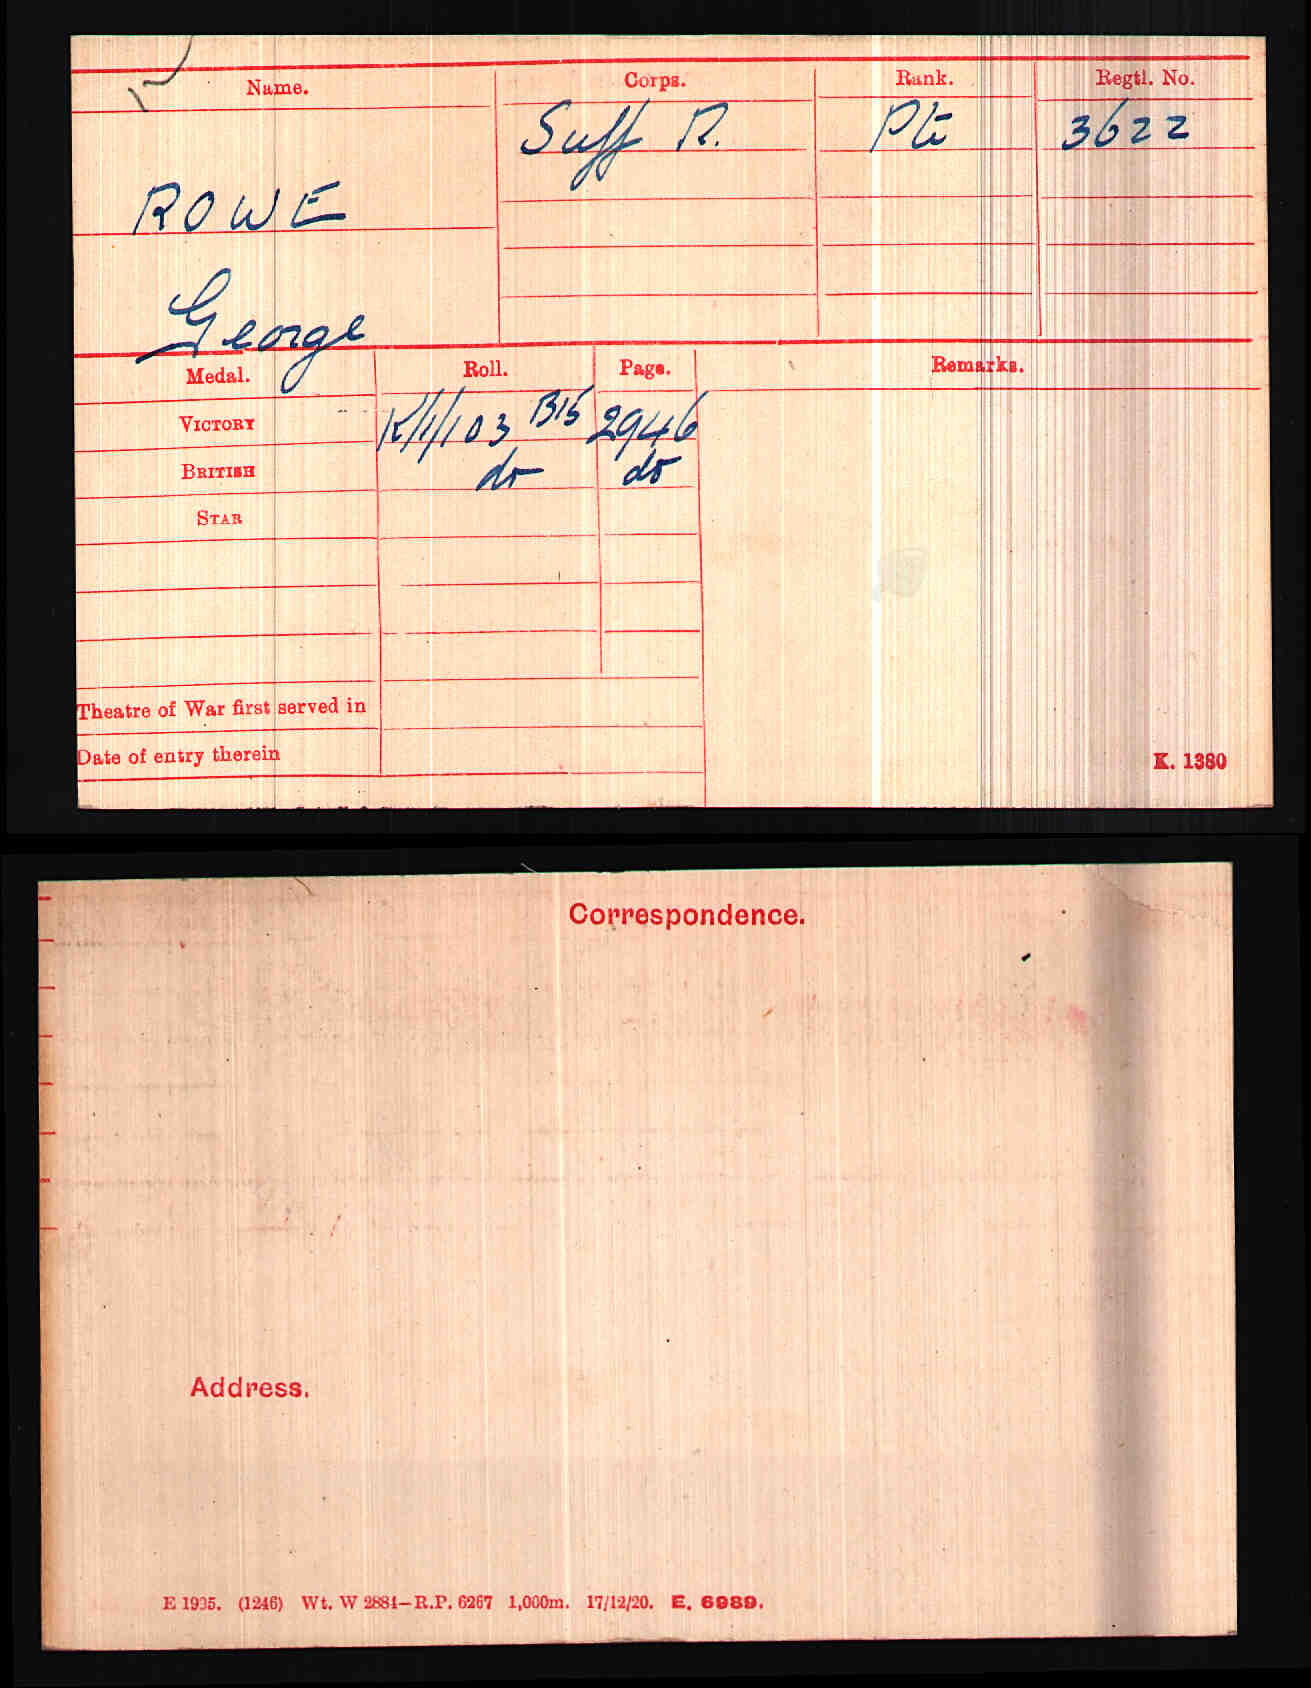 Name. Corps. Rank. Regtl. No.
Suff R. Pte 3622
ROWE
George
Medal. Roll. Page. Remarks.
VICTORY K/1/103 B15 2946
BRITISH do do
STAR
Theatre of War first served in
Date of entry therein
K. 1380
Correspondence.
Address.
E 1935. (1246) Wt. W 2884—R.P. 6267 1,000m. 17/12/20. E. 6989.